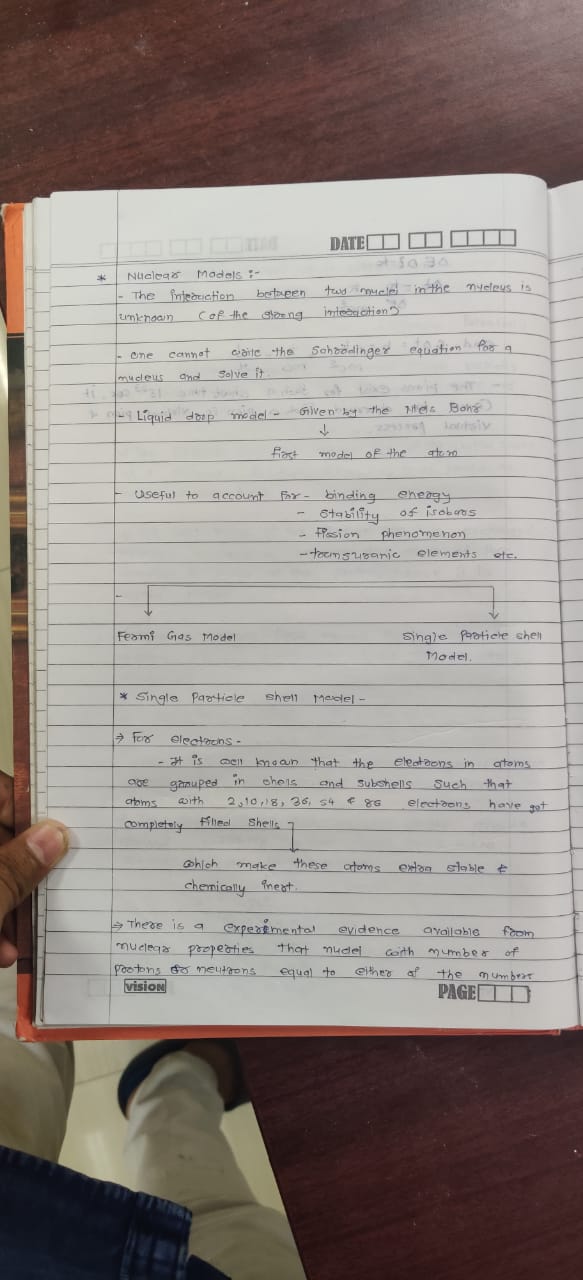 DATE
* Nuclear Models :-
- The interaction between two nuclei in the nucleus is
unknown (of the strong interaction)
- one cannot write the Schrodinger equation for a
nucleus and solve it.
- Liquid drop model - Given by the Niels Bohr
↓
first model of the atom
- Useful to account for - binding energy
- stability of isobars
- fission phenomenon
- transuranic elements etc.
-
Fermi Gas Model Single Particle shell
Model.
* Single Particle Shell Model -
→ For electrons -
- It is well known that the electrons in atoms
are grouped in shells and subshells such that
atoms with 2,10,18, 36, 54 & 86 electrons have got
completely filled shells
which make these atoms extra stable &
chemically inert.
→ There is a experimental evidence available from
nuclear properties that nuclei with number of
protons or neutrons equal to either of the numbers
VISION
PAGE